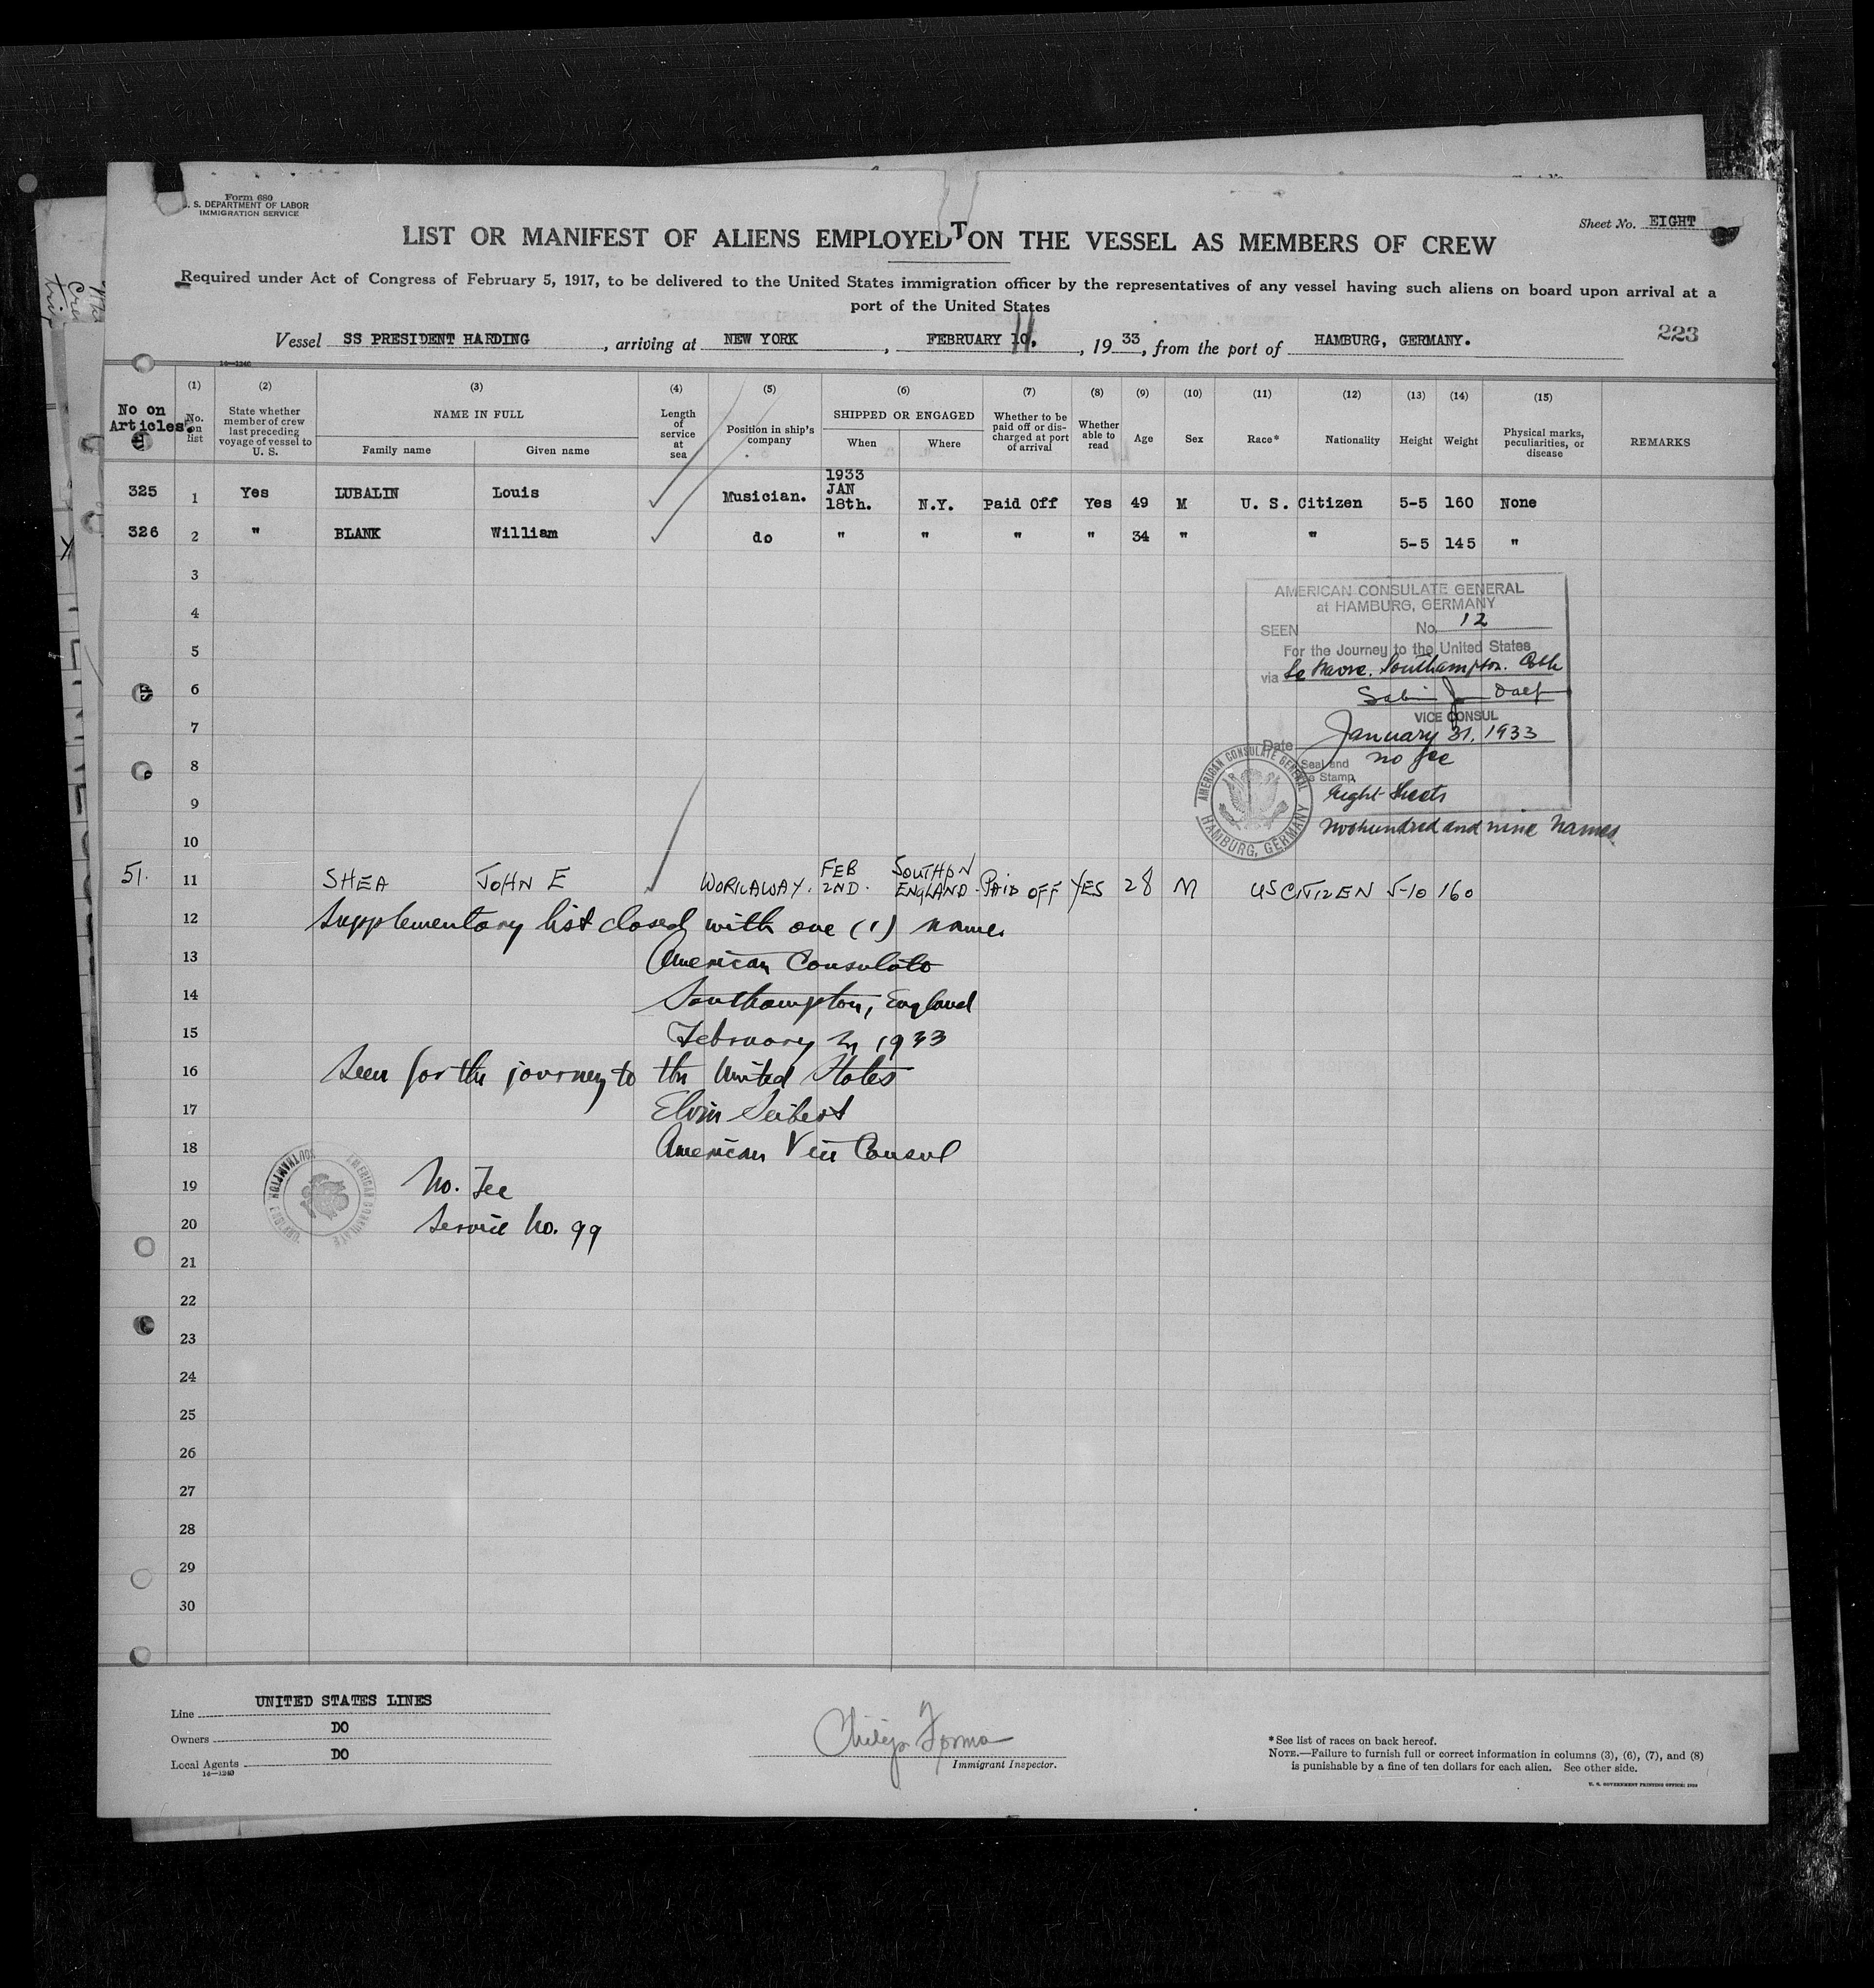 Form 680
U. S. DEPARTMENT OF LABOR
IMMIGRATION SERVICE
Sheet No. EIGHT
LIST OR MANIFEST OF ALIENS EMPLOYED ON THE VESSEL AS MEMBERS OF CREW
Required under Act of Congress of February 5, 1917, to be delivered to the United States immigration officer by the representatives of any vessel having such aliens on board upon arrival at a
port of the United States
Vessel SS PRESIDENT HARDING, arriving at NEW YORK, FEBRUARY 11, 1933, from the port of HAMBURG, GERMANY.
223
14—1240
No on Articles.
(1) No. on list
(2) State whether member of crew last preceding voyage of vessel to U. S.
(3) NAME IN FULL Family name Given name
(4) Length of service at sea
(5) Position in ship's company
(6) SHIPPED OR ENGAGED When Where
(7) Whether to be paid off or discharged at port of arrival
(8) Whether able to read
(9) Age
(10) Sex
(11) Race*
(12) Nationality
(13) Height
(14) Weight
(15) Physical marks, peculiarities, or disease
REMARKS
325 1 Yes LUBALIN Louis Musician. 1933 JAN 18th. N.Y. Paid Off Yes 49 M U. S. Citizen 5-5 160 None
326 2 " BLANK William do " " " " 34 " " 5-5 145 "
3
4
5
6
7
8
9
10
AMERICAN CONSULATE GENERAL
at HAMBURG, GERMANY
SEEN No. 12
For the Journey to the United States
via Le Havre. Southampton.
VICE CONSUL
Date January 31, 1933
Seal and Stamp no fee
Eight sheets
Two hundred and nine names
AMERICAN CONSULATE GENERAL HAMBURG, GERMANY
51. 11 SHEA JOHN E WORKAWAY. FEB 2ND. SOUTHPN ENGLAND. PAID OFF YES 28 M US CITIZEN 5-10 160
12 Supplementary list closed with one (1) name.
13 American Consulate
14 Southampton, England
15 February 2, 1933
16 Seen for the journey to the United States
17 Elvin Seibert
18 American Vice Consul
19 No. Fee
20 Service No. 99
AMERICAN CONSULATE SOUTHAMPTON
21
22
23
24
25
26
27
28
29
30
Line UNITED STATES LINES
Owners DO
Local Agents DO
14—1240
Philip Forma
Immigrant Inspector.
*See list of races on back hereof.
NOTE.—Failure to furnish full or correct information in columns (3), (6), (7), and (8)
is punishable by a fine of ten dollars for each alien. See other side.